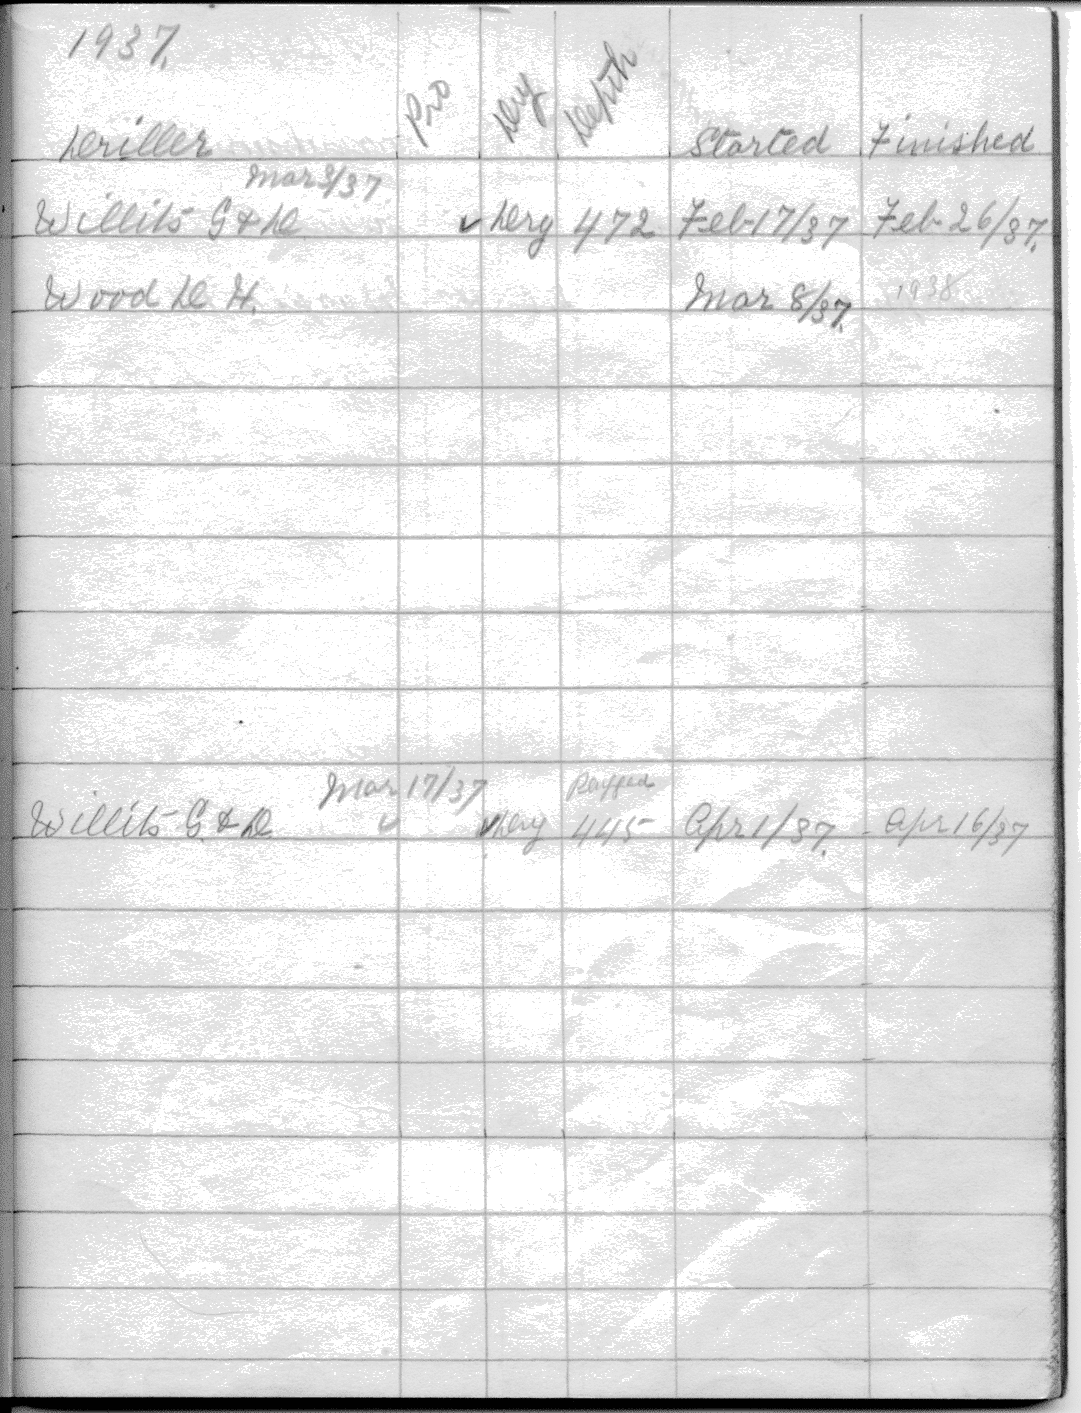 1937.
Driller Pro Dry Depth Started Finished
Mar 3/37.
Willits G & D ✓ Dry 472 Feb-17/37 Feb-26/37.
Wood D H. Mar 8/37. 1938
Mar 17/37
Willits G & D ✓ ✓ Dry 445 Apr 1/37. Apr 16/37